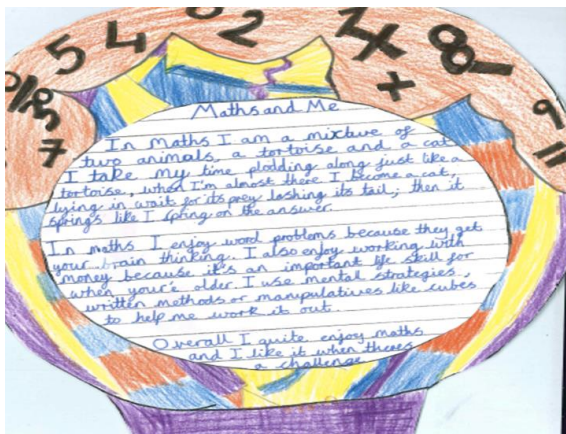 5 4 0 2 7x 8
+
7
9
11
Maths and Me
In Maths I am a mixture of
two animals, a tortoise and a cat
I take my time plodding along just like a
tortoise, when I'm almost there I become a cat,
lying in wait for its prey lashing its tail; then it
springs like I spring on the answer.
In maths I enjoy word problems because they get
your brain thinking. I also enjoy working with
money because it's an important life skill for
when your'e older. I use mental strategies,
written methods or manipulatives like cubes
to help me work it out.
Overall I quite enjoy maths
and I like it when theres
a challenge